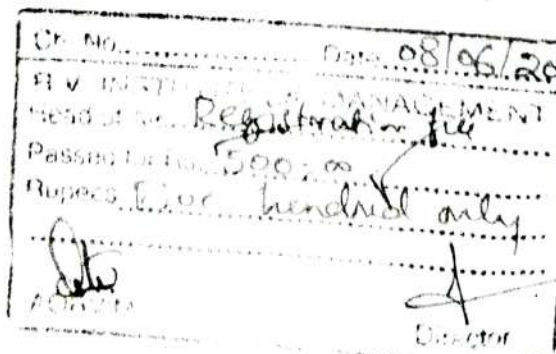 Ch. No.................. Date 08/06/20
R.V. INSTITUTE OF MANAGEMENT
Head of A/c Registration fee
Passed for Rs. 500=00
Rupees Five hundred only
Director